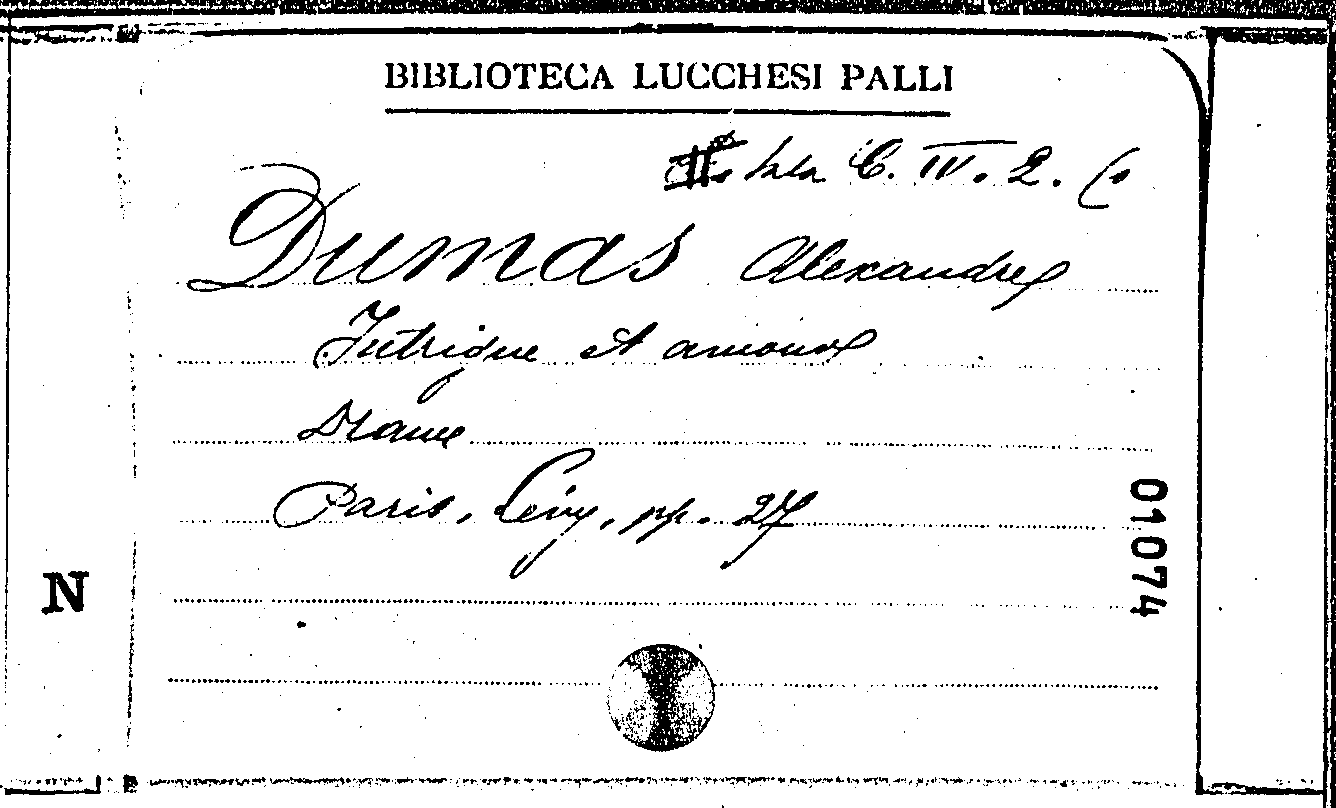 BIBLIOTECA LUCCHESI PALLI
Sala C. IV. 2. (
Dumas Alexandre
Intrigue et amour
Drame
Paris, Lévy, pp. 27
01074
N